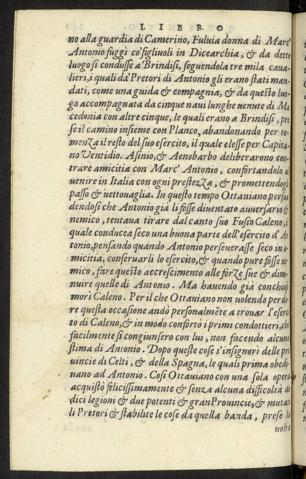 LIBRO
no alla guardia di Camerino, Fuluia donna di Marc'
Antonio fuggi co figliuoli in Dicearchia, & da detto
luogo si condusse a Brindisi, seguendola tre mila caua
lieri, i quali da' Pretori di Antonio gli erano stati man
dati, come una guida & compagnia, & da questo luo
go accompagnata da cinque naui lunghe uenute di Ma
cedonia con altre cinque, le quali erano a Brindisi, pre
se il camino insieme con Planco, abandonando per te
menza il resto del suo esercito, il quale elesse per Capita
no Ventidio. Asinio, & Aenobarbo deliberarono con
trare amicitia con Marc' Antonio, confortandolo a
uenire in Italia con ogni prestezza, & promettendogli
passo & uettouaglia. In questo tempo Ottauiano persua
dendosi che Antonio già li fosse diuentato auuersario &
nemico, tentaua tirare dal canto suo Fusio Caleno, il
quale conducea seco una buona parte dell'esercito d'An
tonio, pensando quando Antonio perseuerasse seco in a
micitia, conseruarli lo esercito, & quando pure fosse ne
mico, fare questo accrescimento alle forze sue & dimi
nuire quelle di Antonio. Ma hauendo già conchiuso
mori Caleno. Per il che Ottauiano non uolendo perde
re questa occasione andò personalmẽte a trouar l'eserci
to di Caleno, & in modo confortò i primi condottieri, che
facilmente si congiunsero con lui, non facendo alcuna
stima di Antonio. Dopo queste cose s'insignorì delle pro
uincie di Celti, & della Spagna, le quali prima obedi
uano ad Antonio. Così Ottauiano con una sola opera
acquistò felicissimamente & senza alcuna difficoltà un
dici legioni & due potenti & gran Prouincie, & mutati
li Pretori & stabilite le cose da quella banda, prese la
uolta